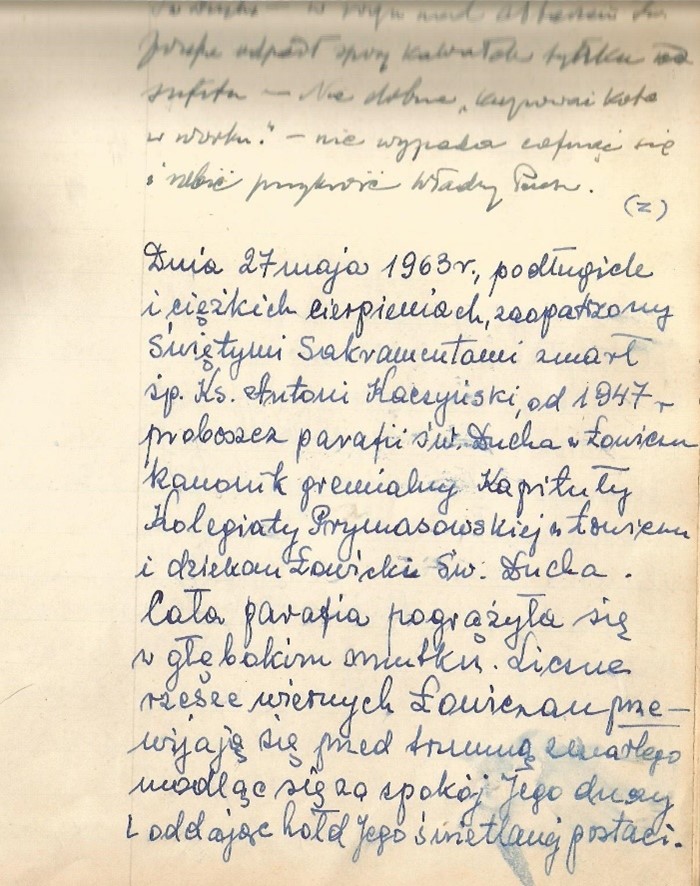 Józefa odpadł spory kawałek tynku od
sufitu — Nie dobrze „kupować kota
w worku." — nie wypada cofnąć się
i robić przykrość Władzy Duch.
(z)
Dnia 27 maja 1963 r., po długich
i ciężkich cierpieniach, zaopatrzony
Świętymi Sakramentami zmarł
śp. Ks. Antoni Kaczyński, od 1947 r
proboszcz parafii św. Ducha w Łowiczu
kanonik gremialny Kapituły
Kolegiaty Prymasowskiej w Łowiczu
i dziekan Łowicki Św. Ducha.
Cała parafia pogrążyła się
w głębokim smutku. Liczne
rzesze wiernych Łowiczan prze-
wijają się przed trumną zmarłego
modląc się za spokój Jego duszy
i oddając hołd Jego świetlanej postaci.